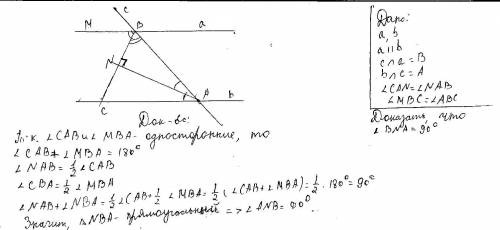 c
M B a
N
A b
C
Дано:
a, b
a∥b
c∩a=B
b∩c=A
∠CAN=∠NAB
∠MBC=∠ABC
Доказать, что
∠BNA=90°
Док-во:
Т.к. ∠CAB и ∠MBA - односторонние, то
∠CAB+∠MBA=180°
∠NAB=½∠CAB
∠CBA=½∠MBA
∠NAB+∠NBA=½∠CAB+½∠MBA=½(∠CAB+∠MBA)=½·180°=90°
Значит, △NBA-прямоугольный => ∠ANB=90°.